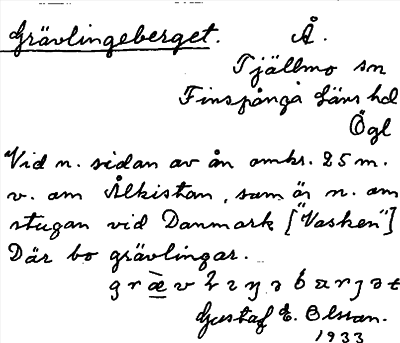 Grävlingeberget. Å.
Tjällmo sn
Finspånga läns hd
Ögl
Vid n. sidan av ån omkr. 25 m.
v. om Ålkistan, som är n. om
stugan vid Danmark ["Vasken"]
Där bo grävlingar.
Gustaf E. Olsson.
1933